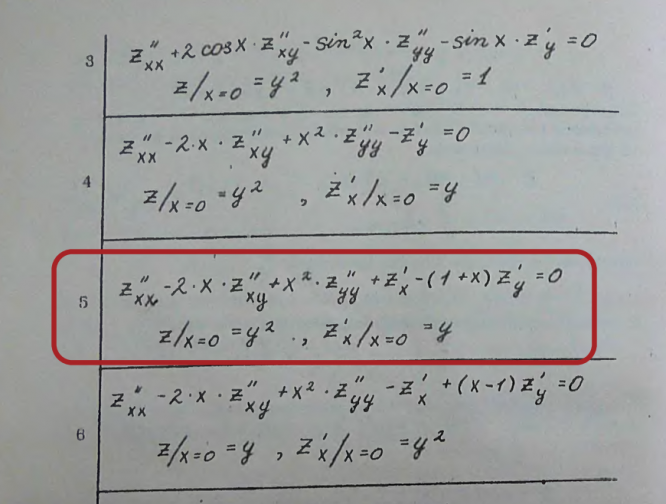 3 z''xx + 2 cosx · z''xy - sin²x · z''yy - sin x · z'y = 0
z/x=0 = y² , z'x/x=0 = 1
z''xx - 2·x · z''xy + x² · z''yy - z'y = 0
4
z/x=0 = y² , z'x/x=0 = y
z''xx - 2·x · z''xy + x² · z''yy + z'x - (1+x) z'y = 0
5
z/x=0 = y² , z'x/x=0 = y
z''xx - 2·x · z''xy + x² · z''yy - z'x + (x-1) z'y = 0
6
z/x=0 = y , z'x/x=0 = y²